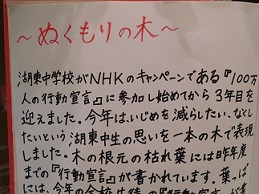 ～ぬくもりの木～
湖東中学校がNHKのキャンペーンである『100万
人の行動宣言』に参加し始めてから3年目を
迎えました。今年はいじめを減らしたい、なくし
たいという湖東中生の思いを一本の木で表現
しました。木の根元の枯れ葉には昨年度
までの『行動宣言』が書かれています。葉っぱ
には、今年の全校生徒の『行動宣言』が書